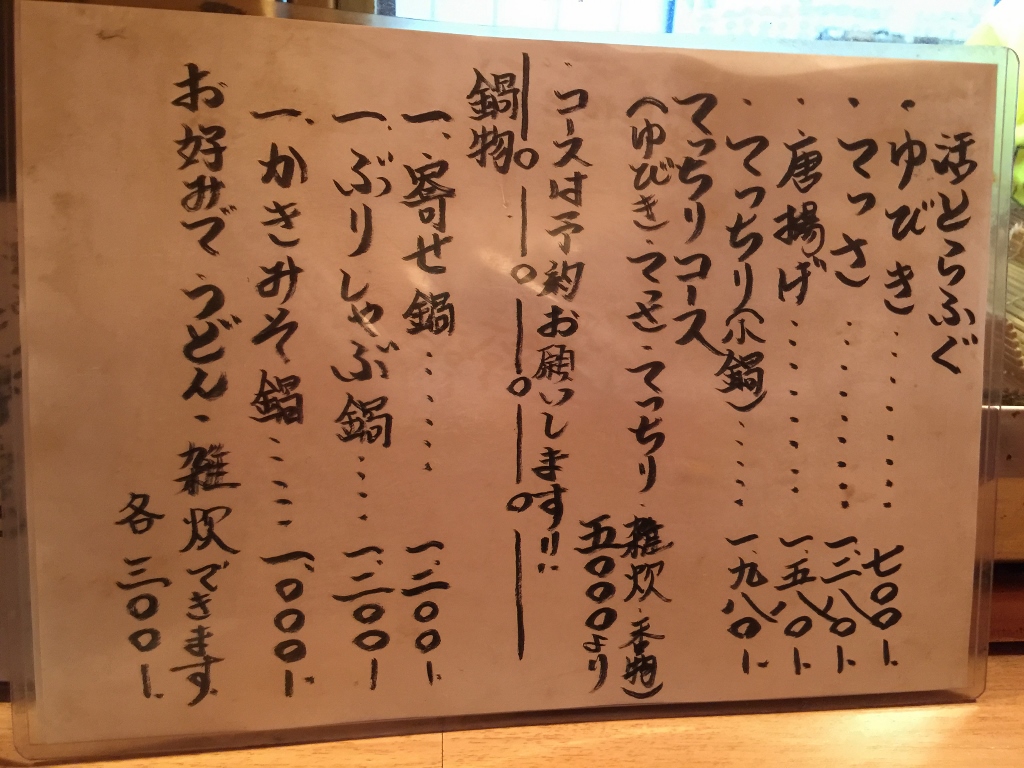 活とらふぐ
・ゆびき・・・・・・・・・七〇〇ー
・てっさ・・・・・・・・一、二八〇ー
・唐揚げ・・・・・・・・一、五八〇ー
・てっちり(小鍋)・・・・・一、九八〇ー
てっちりコース
(ゆびき・てっさ・てっちり・雑炊・香物)
五〇〇〇より
コースは予約お願いします!!
鍋物
一、寄せ鍋・・・・・・一、二〇〇ー
一、ぶりしゃぶ鍋・・・・一、二〇〇ー
一、かきみそ鍋・・・・一、〇〇〇ー
お好みで・うどん・雑炊できます
各 三〇〇ー